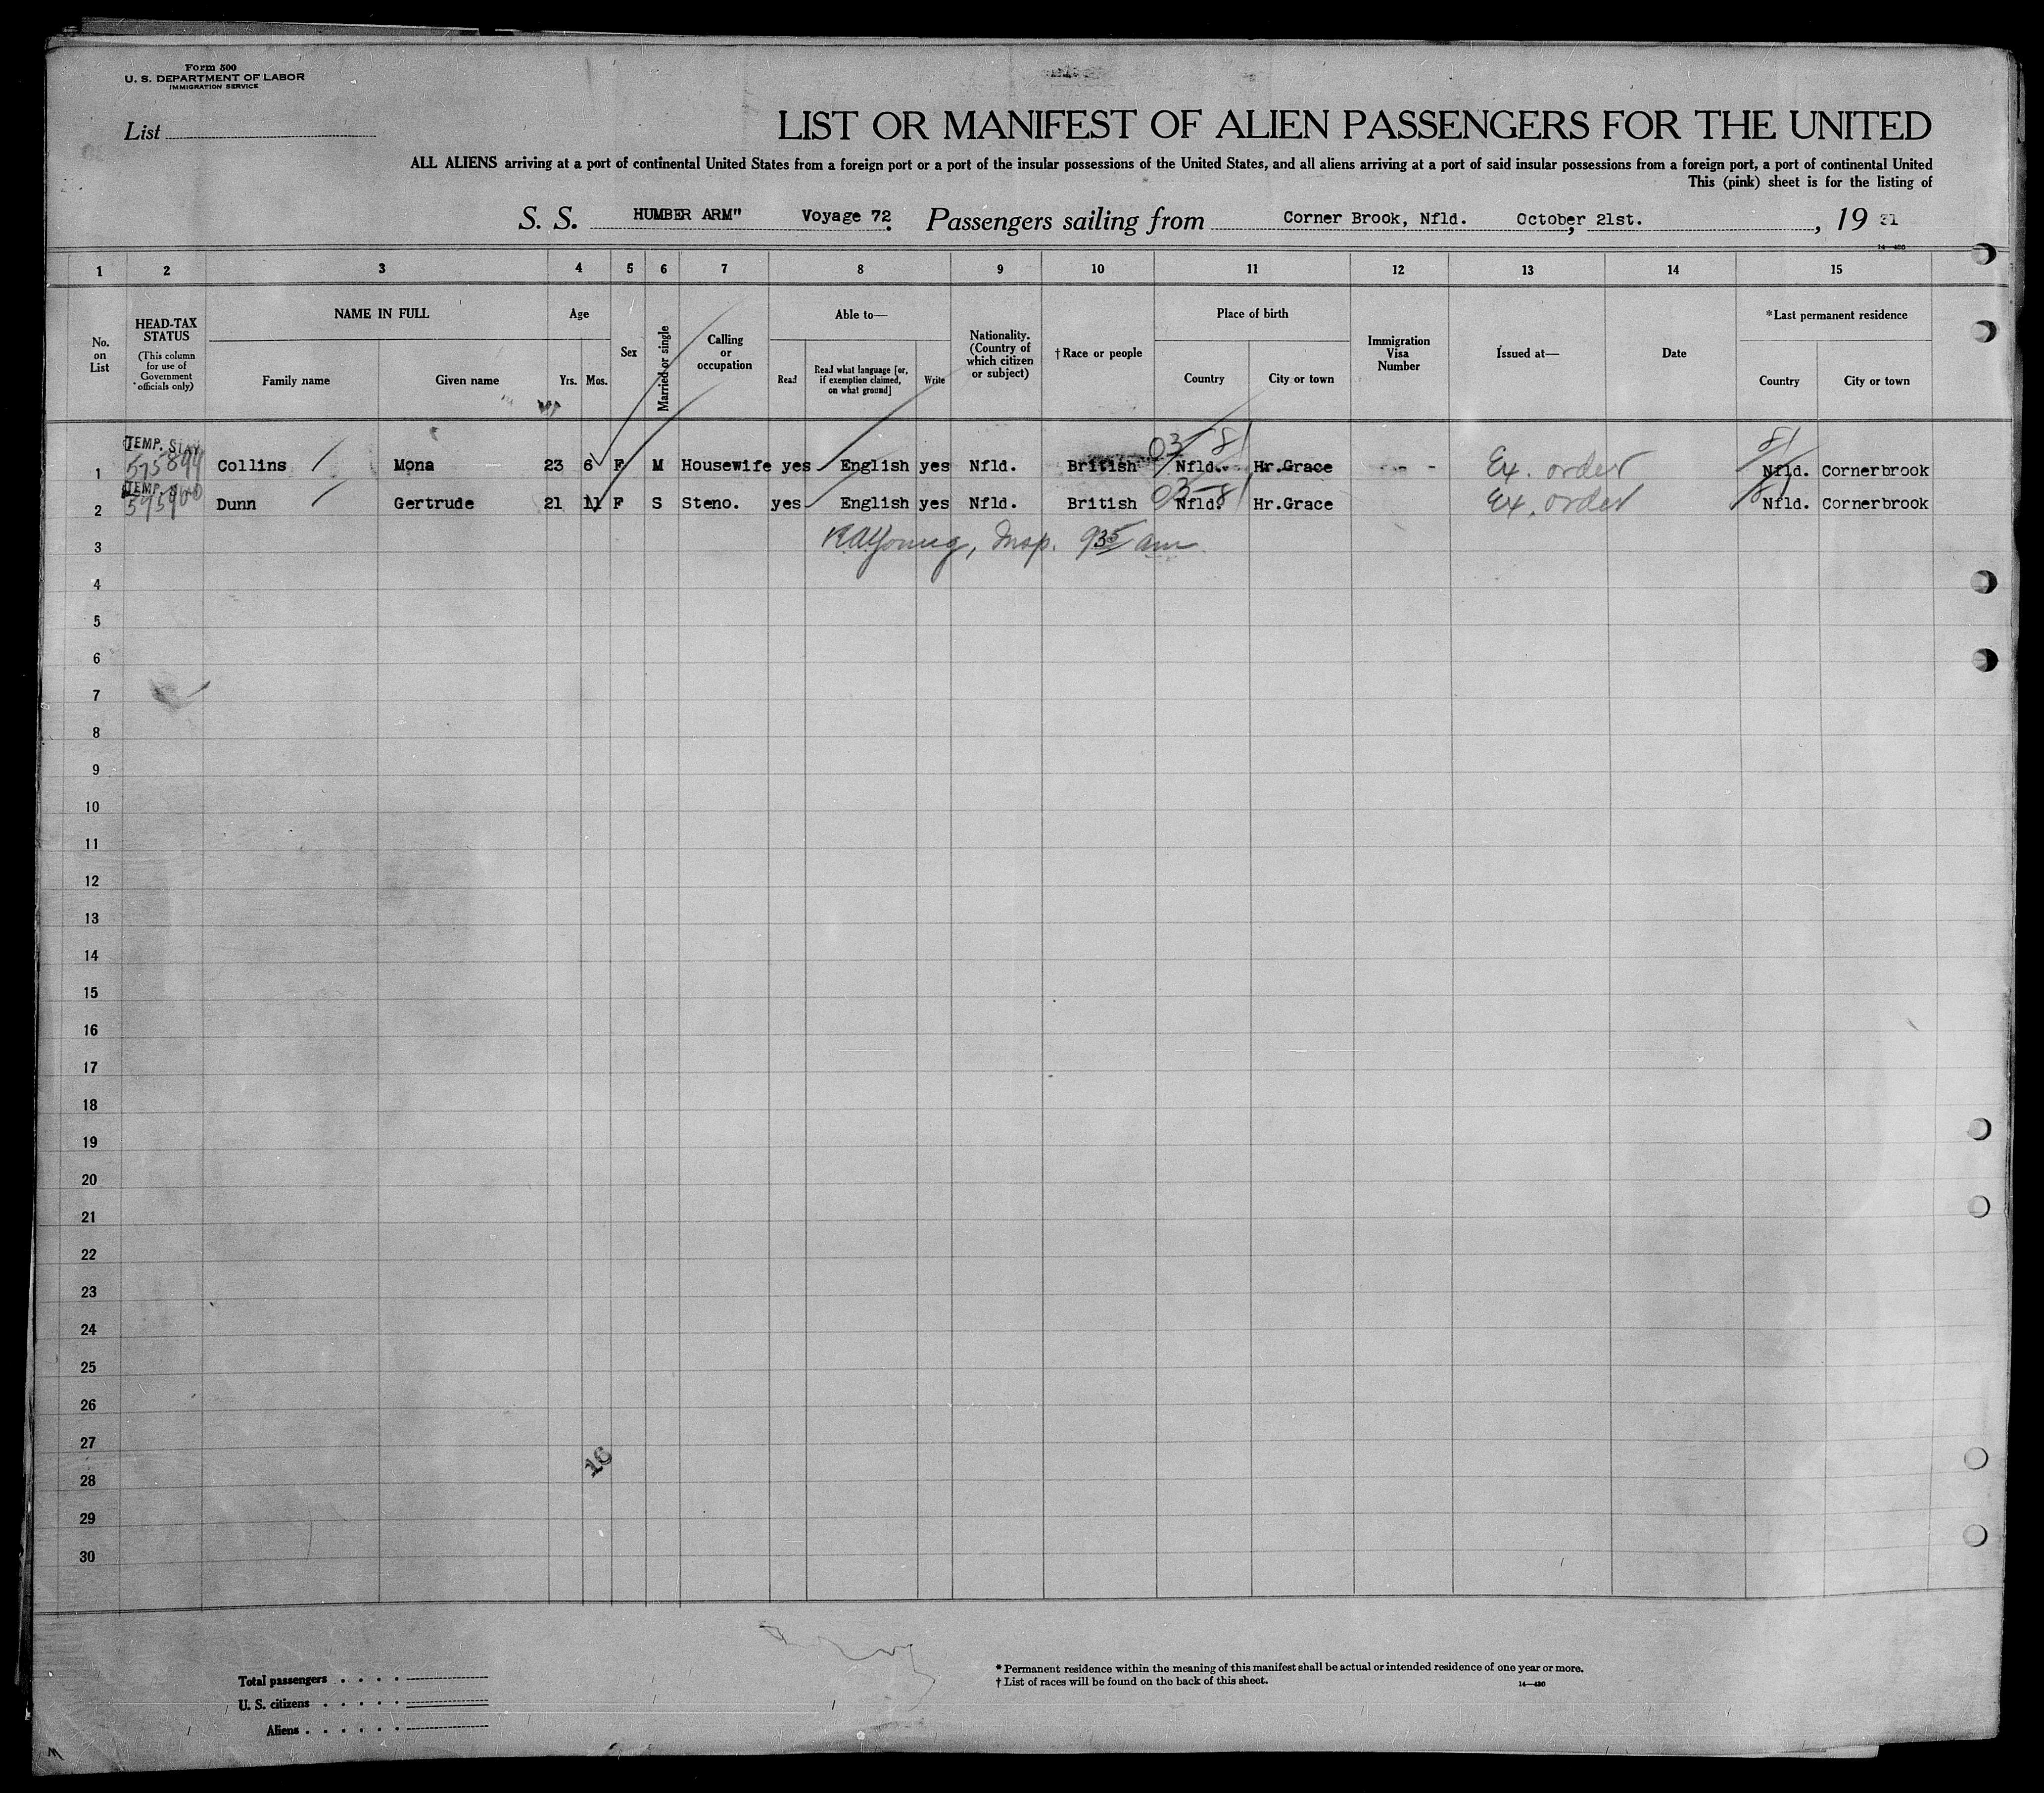 Form 500
U. S. DEPARTMENT OF LABOR
IMMIGRATION SERVICE
List
LIST OR MANIFEST OF ALIEN PASSENGERS FOR THE UNITED
ALL ALIENS arriving at a port of continental United States from a foreign port or a port of the insular possessions of the United States, and all aliens arriving at a port of said insular possessions from a foreign port, a port of continental United
This (pink) sheet is for the listing of
S. S. HUMBER ARM" Voyage 72. Passengers sailing from Corner Brook, Nfld. October 21st. , 19 31
14—430
1 2 3 4 5 6 7 8 9 10 11 12 13 14 15
No. on List
HEAD-TAX STATUS (This column for use of Government officials only)
NAME IN FULL
Family name Given name
Age
Yrs. Mos.
Sex
Married or single
Calling or occupation
Able to—
Read
Read what language [or, if exemption claimed, on what ground]
Write
Nationality. (Country of which citizen or subject)
† Race or people
Place of birth
Country City or town
Immigration Visa Number
Issued at—
Date
*Last permanent residence
Country City or town
03 81 81
1 TEMP. STAY Collins Mona 23 6 F M Housewife yes English yes Nfld. British Nfld. Hr.Grace Ex. order Nfld. Cornerbrook
03-81 81
2 TEMP. Dunn Gertrude 21 11 F S Steno. yes English yes Nfld. British Nfld. Hr.Grace Ex. order Nfld. Cornerbrook
3 RAYoung, Insp. 9 35 am
4
5
6
7
8
9
10
11
12
13
14
15
16
17
18
19
20
21
22
23
24
25
26
27
16
28
29
30
Total passengers
U. S. citizens
Aliens
* Permanent residence within the meaning of this manifest shall be actual or intended residence of one year or more.
† List of races will be found on the back of this sheet.
14—430